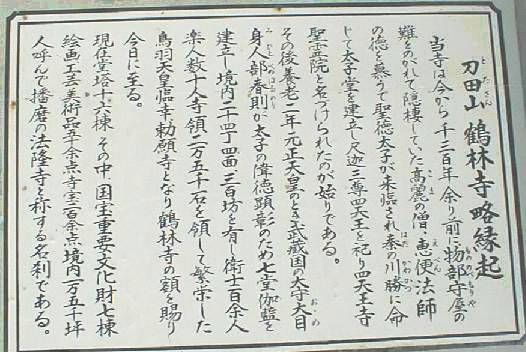 刀田山 鶴林寺略縁起
当寺は今から千三百年余り前に物部守屋の
難をのがれて隠棲していた高麗の僧・恵便法師
の徳を慕うて聖徳太子が来臨され秦の川勝に命
じて太子堂を建立し尺迦三尊四天王を祀り四天王寺
聖霊院と名づけられたのが始りである。
その後養老二年元正天皇のとき武蔵国の大守大目
身人部春則が太子の偉徳顕彰のため七堂伽藍を
建立し境内二十四丁四面三百坊を有し衛士百余人
楽人数十人寺領二万五千石を領して繁栄した
鳥羽天皇臨幸勅願寺となり鶴林寺の額を賜り
今日に至る。
現在堂塔十六棟 その中、国宝重要文化財七棟
絵画工芸美術品卒余点寺宝二百余点境内一万五千坪
人呼んで播磨の法隆寺と称する名刹である。